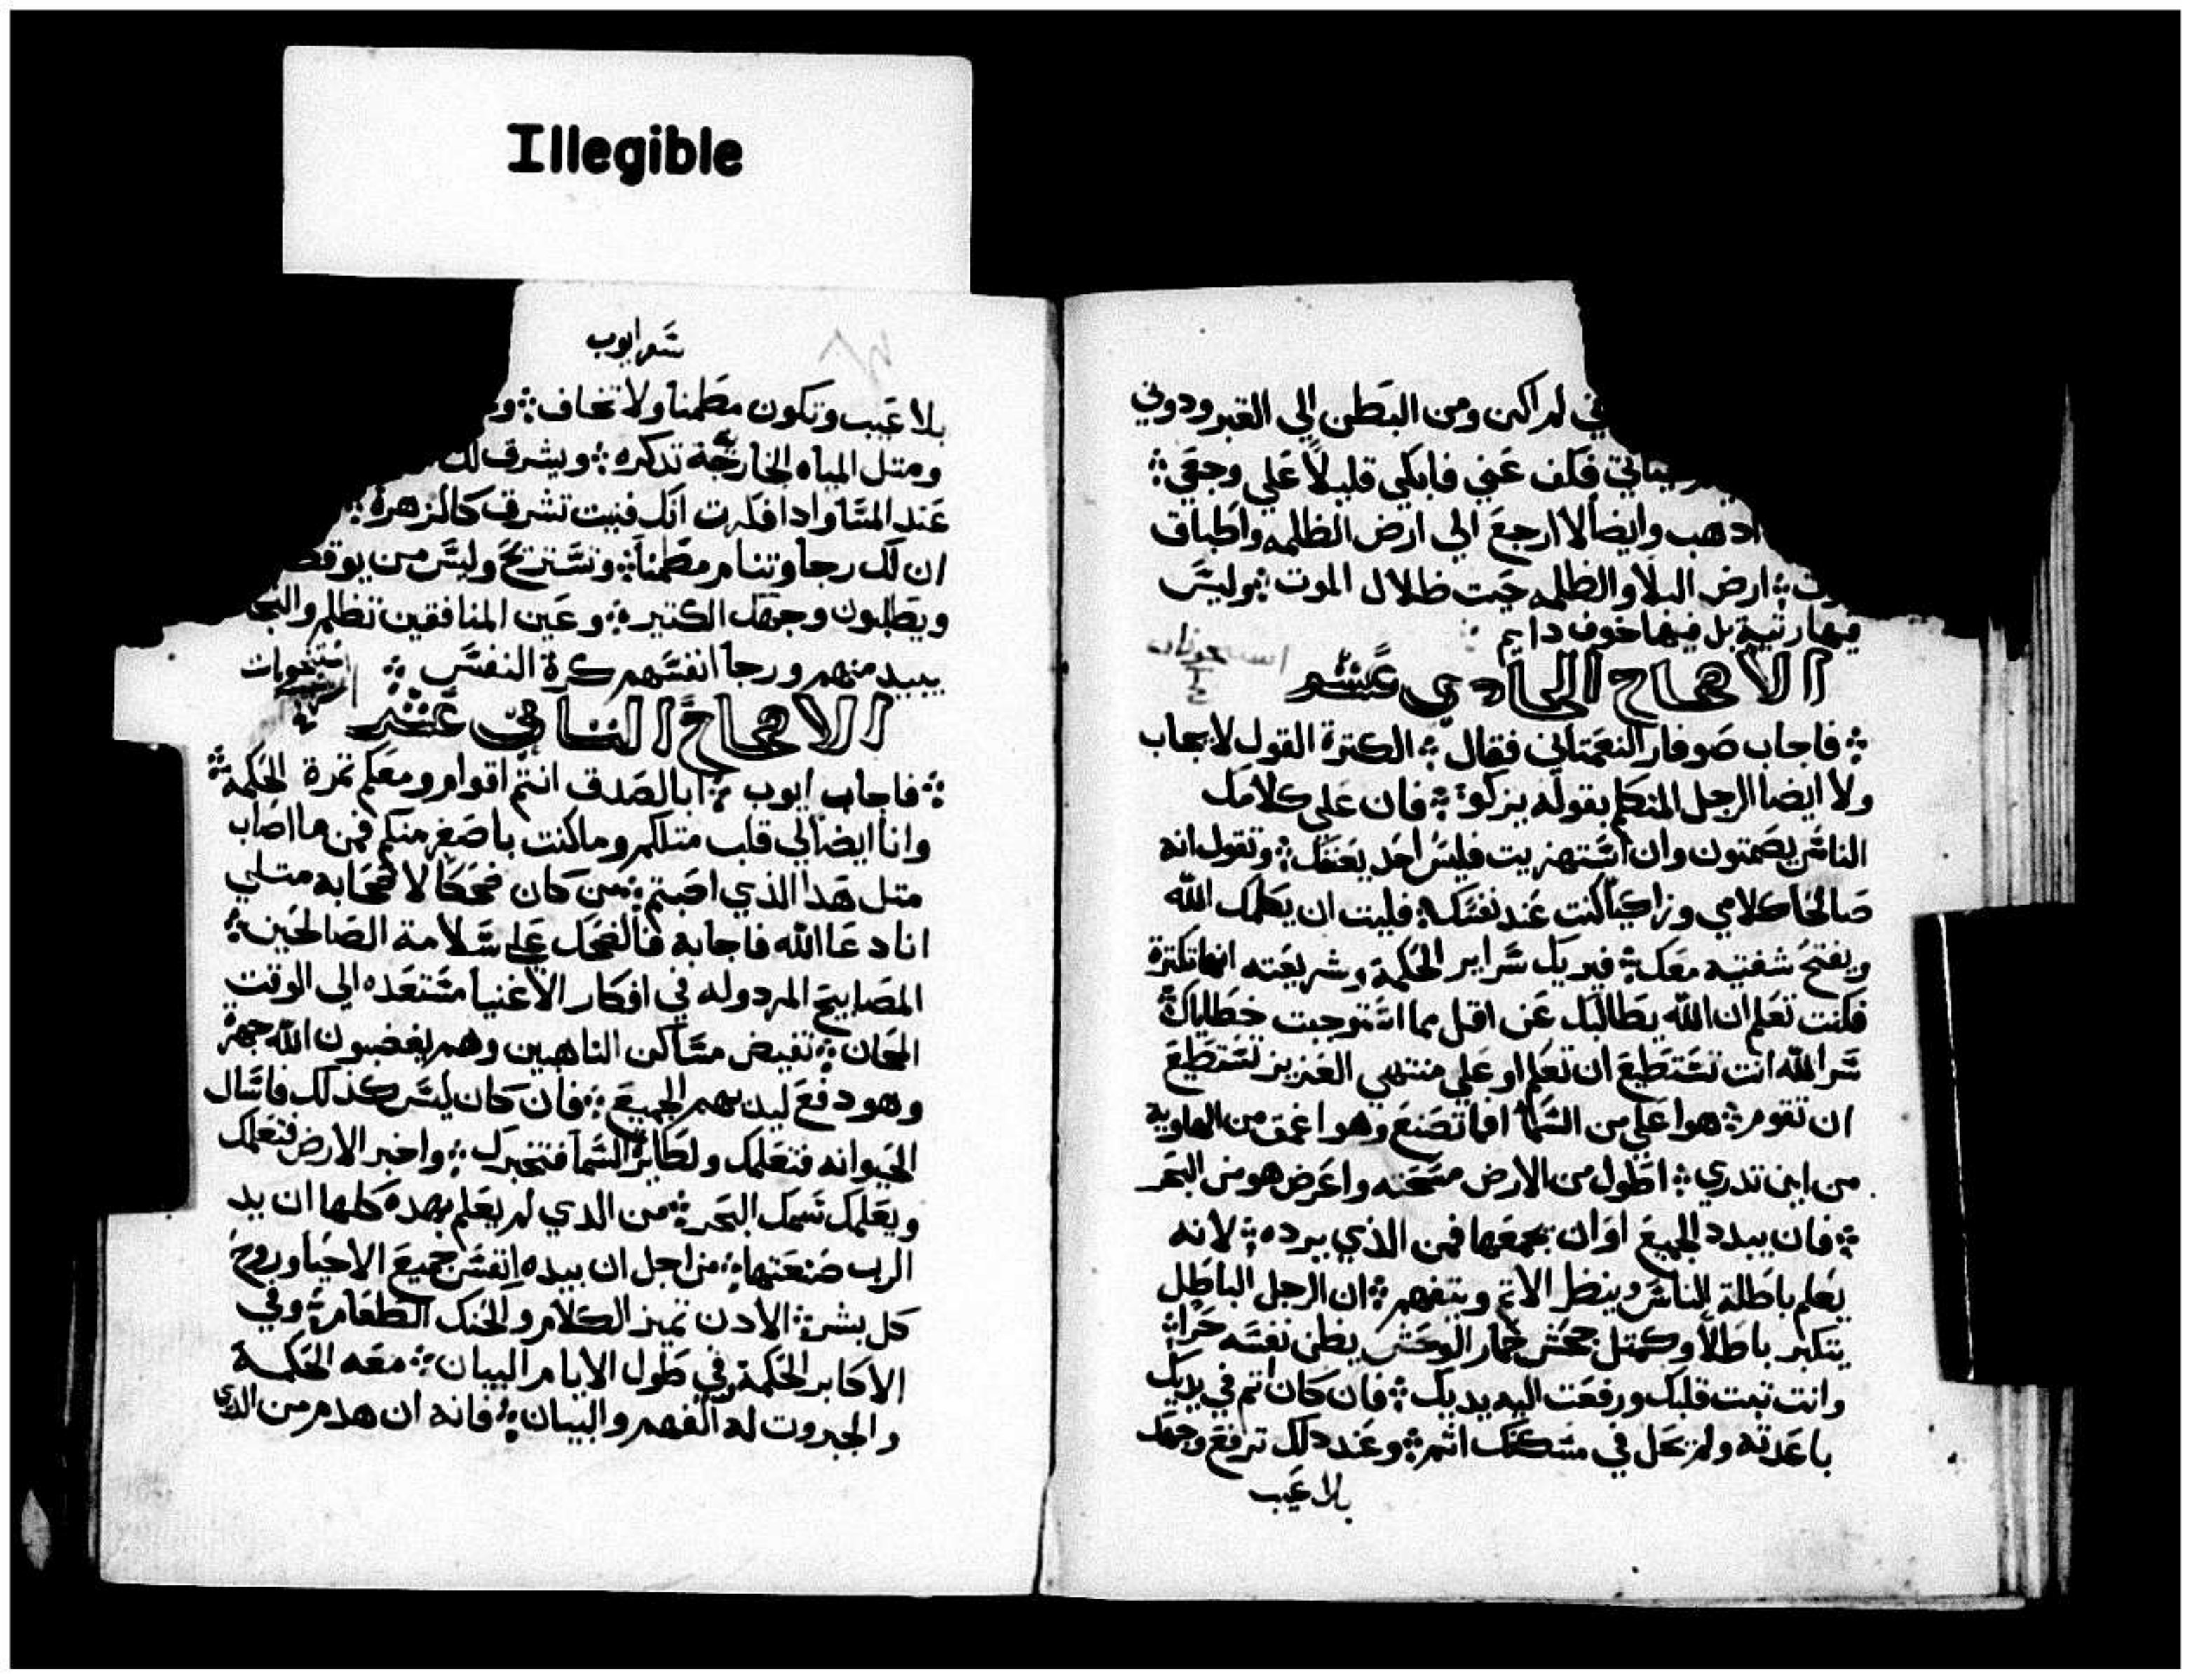 Illegible
ني لم اكن ومن البطن الي القبر ودوني
فكف عني فابكي قليلاً علي وجعي ፨
اذهب وايضاً لا ارجع الي ارض الظلمه واطباق
ارض البلا والظلمه حيت ظلال الموت ፨ وليس
فيها رتبة بل فيها خوف دايم
الاصحاح الحادي عشر
፨ فاجاب صوفار النعمتاني فقال ፨ الكترة القول لا يجاب
ولا ايضا الرجل المتكلم بقوله يزكوا ፨ فان علي كلامك
الناس يصمتون وان استهزيت فليس احد يعنفك ፨ وتقول انه
صالحا كلامي وزاكياً كنت عند نفسك ፨ فليت ان يكلمك الله
ويفتح شفتيه معك ፨ فيريك سراير الحكمة وشريعته انها تكترة
فكنت تعلم ان الله يطالبك عن اقل مما استوجبت خطاياك ፨
سر الله انت تستطيع ان تعلم او علي منتهي العزيز تستطيع
ان تقوم ፨ هوا علي من السما فما تصنع وهوا عمق من الهاوية
من اين تدري ፨ اطول من الارض مسحته واعرض هو من البحر
፨ فان يبدد الجميع او ان يجمعها فمن الذي يرده ፨ لانه
يعلم باطلة الناس وينظر الاتم ويتفهم ፨ ان الرجل الباطل
يتكبر باطلاً وكمتل جحش حمار الوحش يظن نفسه حراً ፨
وانت تبت قلبك ورفعت اليه يديك ፨ فان كان اتم في يديك
باعدته ولم يحل في مسكنك اثم ፨ وعند دلك ترفع وجهك
بلا عيب
سفر ايوب
بلا عيب وتكون مطمنا ولا تخاف ፨
ومتل المياه الخارجة تدكره ፨ ويشرق لك
عند المسا وادا فكرت انك فنيت تشرق كالزهرة ፨
ان لك رجا وتنام مطمناً ፨ وتستريح وليس من
ويطلبون وجهك الكتيرة ፨ وعين المنافقين تظلم
يبيد منهم ورجا انفسهم كرة النفس ፨
الاصحاح التاني عشر
፨ فاجاب ايوب ፨ ابالصدق انتم اقوام ومعكم تمرة الحكمة ፨
وانا ايضا لي قلب متلكم وما كنت باصغر منكم فمن ما اصاب
متل هدا الذي اصبتم ፨ من كان ضحكا لاصحابه متلي
انا دعا الله فاجابه فالضحك علي سلامة الصالحين ፨
المصابيح المردوله في افكار الاغنيا مستعده الي الوقت
المحان ፨ تفيض مساكن الناهبين وهم يغضبون الله جهرة
وهو دفع ليديهم الجميع ፨ فان كان ليس كذلك فاسال
الحيوانه فتعلمك ولطاير السما فتخبرك ፨ واخبر الارض فتعلمك
ويعلمك سمك البحر ፨ من الدي لم يعلم بهده كلها ان يد
الرب صنعتها ፨ من اجل ان بيده انفس جميع الاحيا وروح
كل بشر ፨ الادن تميز الكلام والحنك الطعام ፨ وفي
الاكابر الحكمة وفي طول الايام البيان ፨ معه الحكمة
والجبروت له الفهم والبيان ፨ فانه ان هدم من الدي